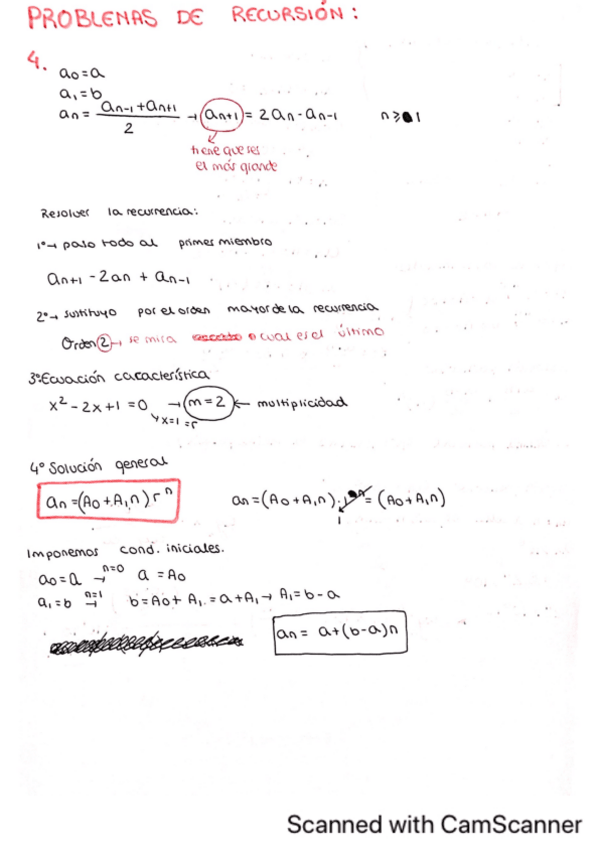 PROBLENAS DE RECURSIÓN:
4.
a₀=a
a₁=b
aₙ = (aₙ₋₁+aₙ₊₁)/2 → aₙ₊₁ = 2aₙ - aₙ₋₁ n≥1
tiene que ser
el más grande
Resolver la recurrencia:
1º→ paso todo al primer miembro
aₙ₊₁ - 2aₙ + aₙ₋₁
2º→ sustituyo por el orden mayor de la recurrencia
Orden 2 → se mira o cual es el último
3º Ecuación característica
x² - 2x + 1 = 0 → m = 2 ← multiplicidad
x=1=r
4º Solución general
aₙ = (A₀+A₁n) rⁿ aₙ = (A₀+A₁n) · 1ⁿ = (A₀+A₁n)
1
Imponemos cond. iniciales.
a₀=a n=0 → a = A₀
a₁=b n=1 → b=A₀+A₁=a+A₁ → A₁=b-a
aₙ = a+(b-a)n
Scanned with CamScanner